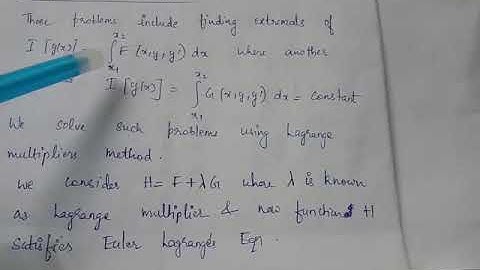 Those problems include finding extremals of
I [y(x)] ∫ₓ₁ˣ² F (x, y, y') dx where another
I [y(x)] = ∫ₓ₁ˣ² G (x, y, y') dx = constant
We solve such problems using Lagrange
multipliers method.
We consider H = F + λG where λ is known
as Lagrange multiplier & now function H
satisfies Euler Lagrange's Eqn.